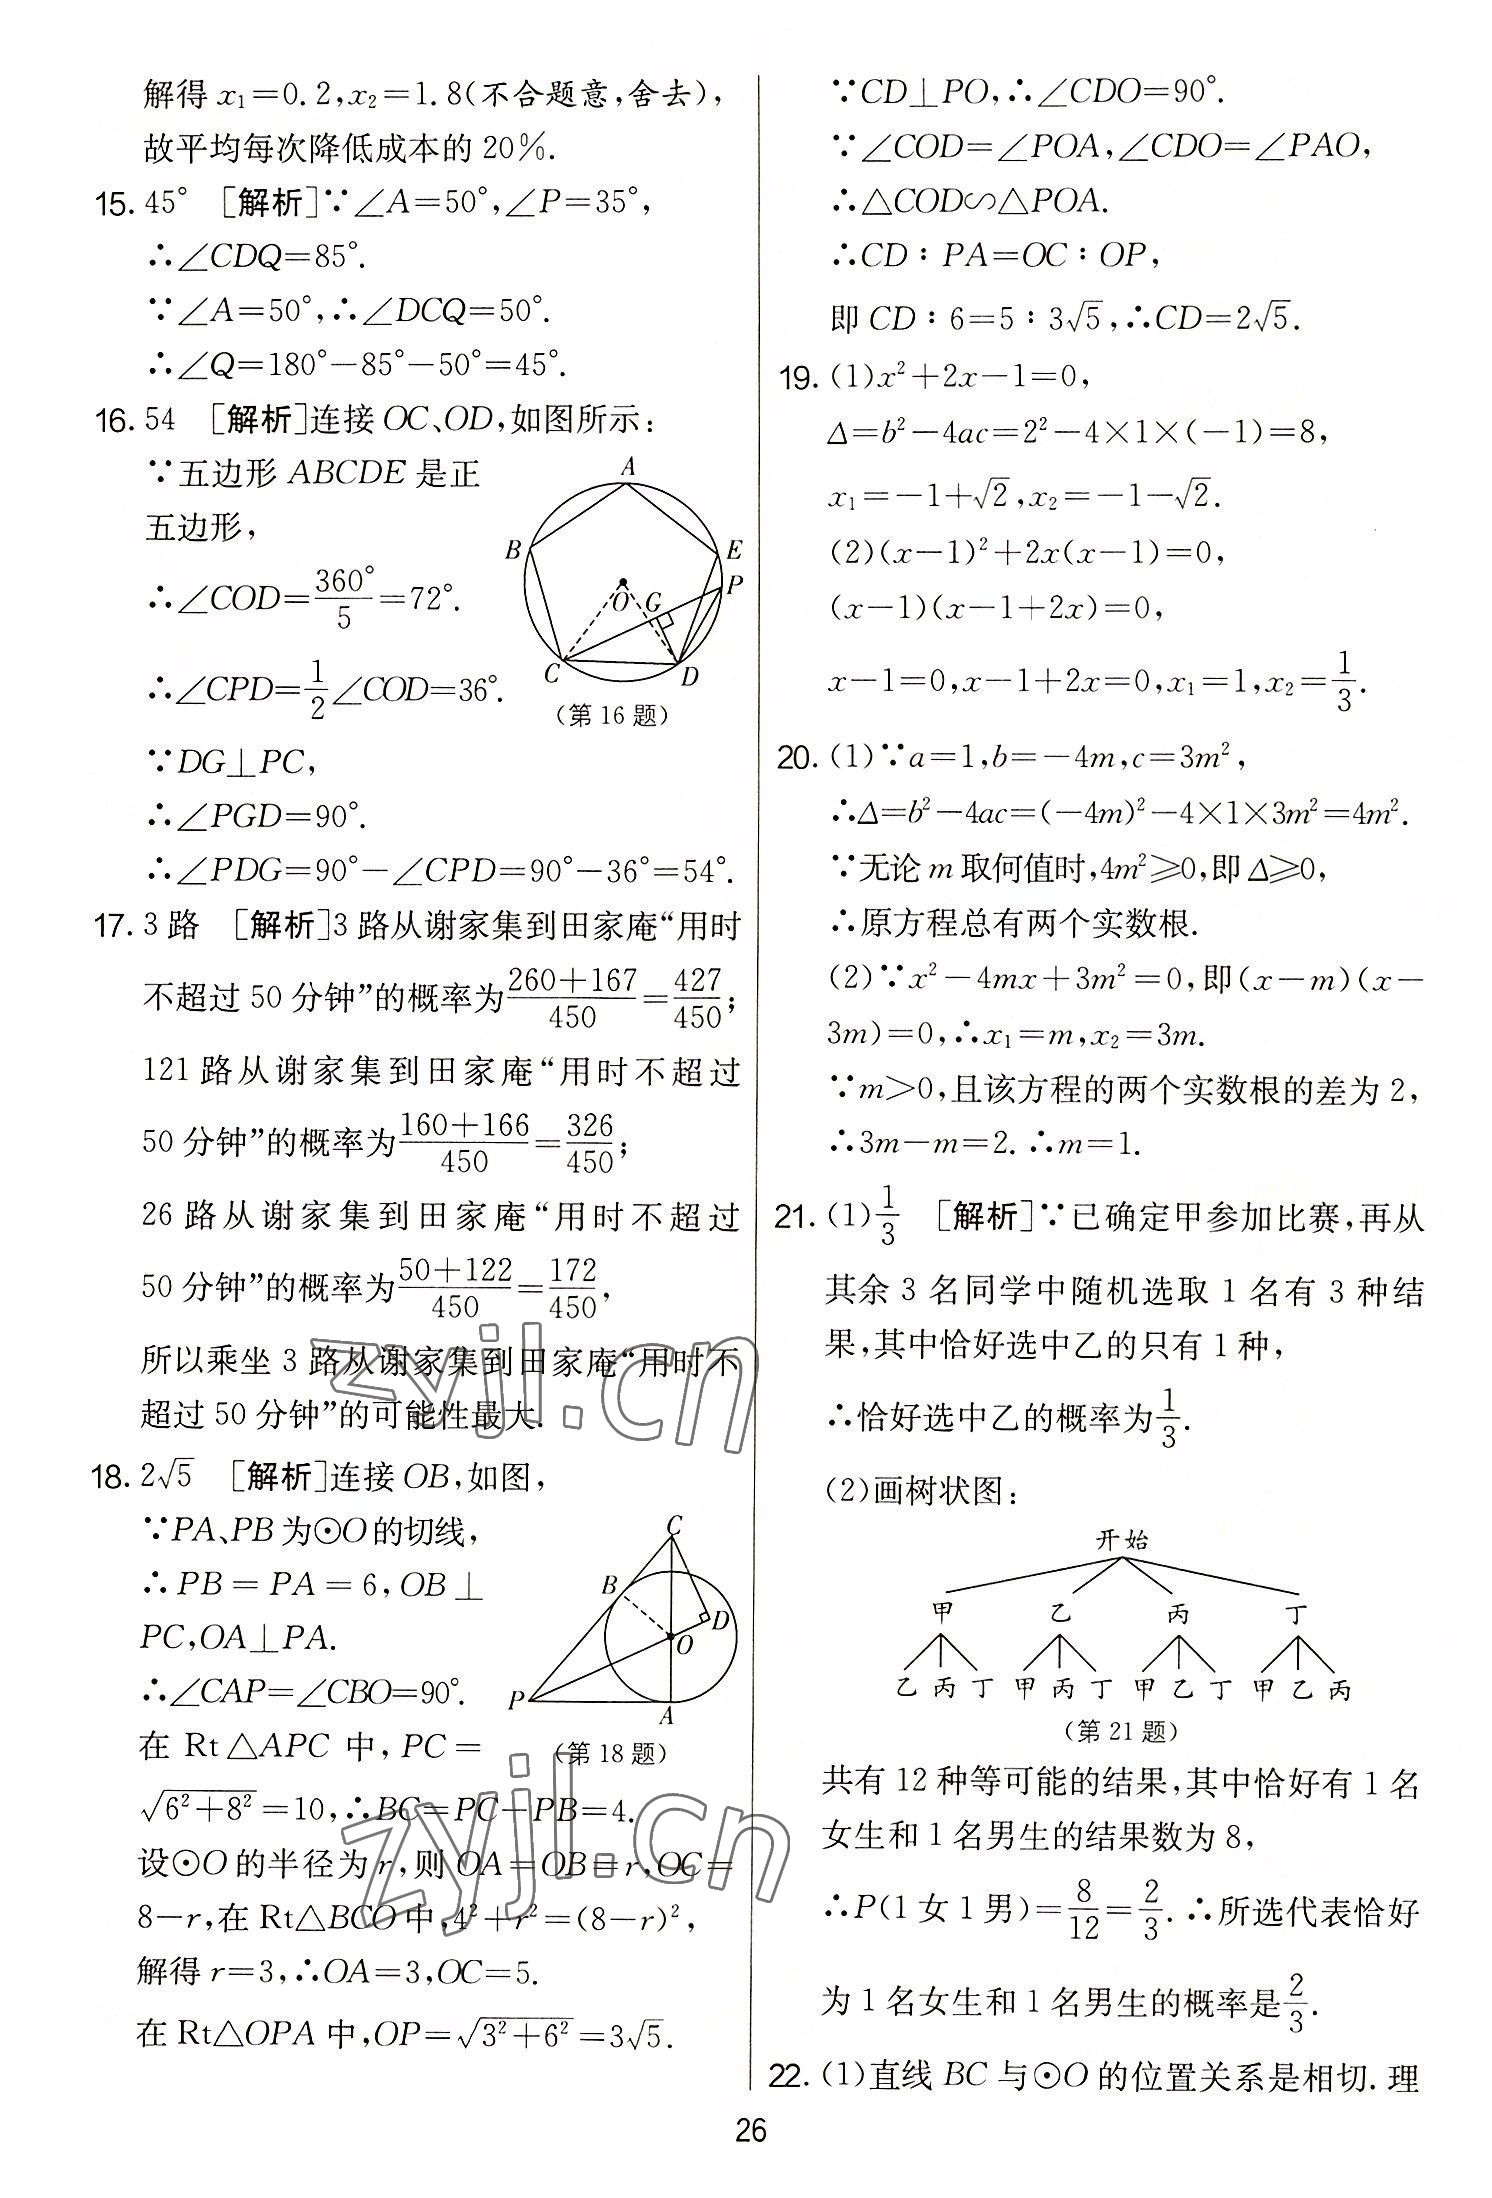 解得 x₁=0.2,x₂=1.8(不合题意,舍去),
故平均每次降低成本的 20%.
15. 45° [解析]∵∠A=50°,∠P=35°,
∴∠CDQ=85°.
∵∠A=50°,∴∠DCQ=50°.
∴∠Q=180°−85°−50°=45°.
16. 54 [解析]连接 OC、OD,如图所示:
∵五边形 ABCDE 是正
五边形,
∴∠COD=360°/5=72°.
∴∠CPD=1/2∠COD=36°.
A
B
E
P
O
G
C
D
(第 16 题)
∵DG⊥PC,
∴∠PGD=90°.
∴∠PDG=90°−∠CPD=90°−36°=54°.
17. 3 路 [解析]3 路从谢家集到田家庵“用时
不超过 50 分钟”的概率为(260+167)/450=427/450;
121 路从谢家集到田家庵“用时不超过
50 分钟”的概率为(160+166)/450=326/450;
26 路从谢家集到田家庵“用时不超过
50 分钟”的概率为(50+122)/450=172/450,
所以乘坐 3 路从谢家集到田家庵“用时不
超过 50 分钟”的可能性最大.
18. 2√5 [解析]连接 OB,如图,
∵PA、PB 为⊙O 的切线,
∴PB=PA=6,OB⊥
PC,OA⊥PA.
∴∠CAP=∠CBO=90°.
在 Rt△APC 中,PC=
C
B
D
O
P
A
(第 18 题)
√(6²+8²)=10,∴BC=PC−PB=4.
设⊙O 的半径为 r,则 OA=OB=r,OC=
8−r,在 Rt△BCO 中,4²+r²=(8−r)²,
解得 r=3,∴OA=3,OC=5.
在 Rt△OPA 中,OP=√(3²+6²)=3√5.
∵CD⊥PO,∴∠CDO=90°.
∵∠COD=∠POA,∠CDO=∠PAO,
∴△COD∽△POA.
∴CD∶PA=OC∶OP,
即 CD∶6=5∶3√5,∴CD=2√5.
19. (1)x²+2x−1=0,
Δ=b²−4ac=2²−4×1×(−1)=8,
x₁=−1+√2,x₂=−1−√2.
(2)(x−1)²+2x(x−1)=0,
(x−1)(x−1+2x)=0,
x−1=0,x−1+2x=0,x₁=1,x₂=1/3.
20. (1)∵a=1,b=−4m,c=3m²,
∴Δ=b²−4ac=(−4m)²−4×1×3m²=4m².
∵无论 m 取何值时,4m²≥0,即 Δ≥0,
∴原方程总有两个实数根.
(2)∵x²−4mx+3m²=0,即(x−m)(x−
3m)=0,∴x₁=m,x₂=3m.
∵m>0,且该方程的两个实数根的差为 2,
∴3m−m=2.∴m=1.
21. (1)1/3 [解析]∵已确定甲参加比赛,再从
其余 3 名同学中随机选取 1 名有 3 种结
果,其中恰好选中乙的只有 1 种,
∴恰好选中乙的概率为1/3.
(2)画树状图:
开始
甲 乙 丙 丁
乙 丙 丁 甲 丙 丁 甲 乙 丁 甲 乙 丙
(第 21 题)
共有 12 种等可能的结果,其中恰好有 1 名
女生和 1 名男生的结果数为 8,
∴P(1 女 1 男)=8/12=2/3.∴所选代表恰好
为 1 名女生和 1 名男生的概率是2/3.
22. (1)直线 BC 与⊙O 的位置关系是相切.理
26
zyjl.cn
zyjl.cn